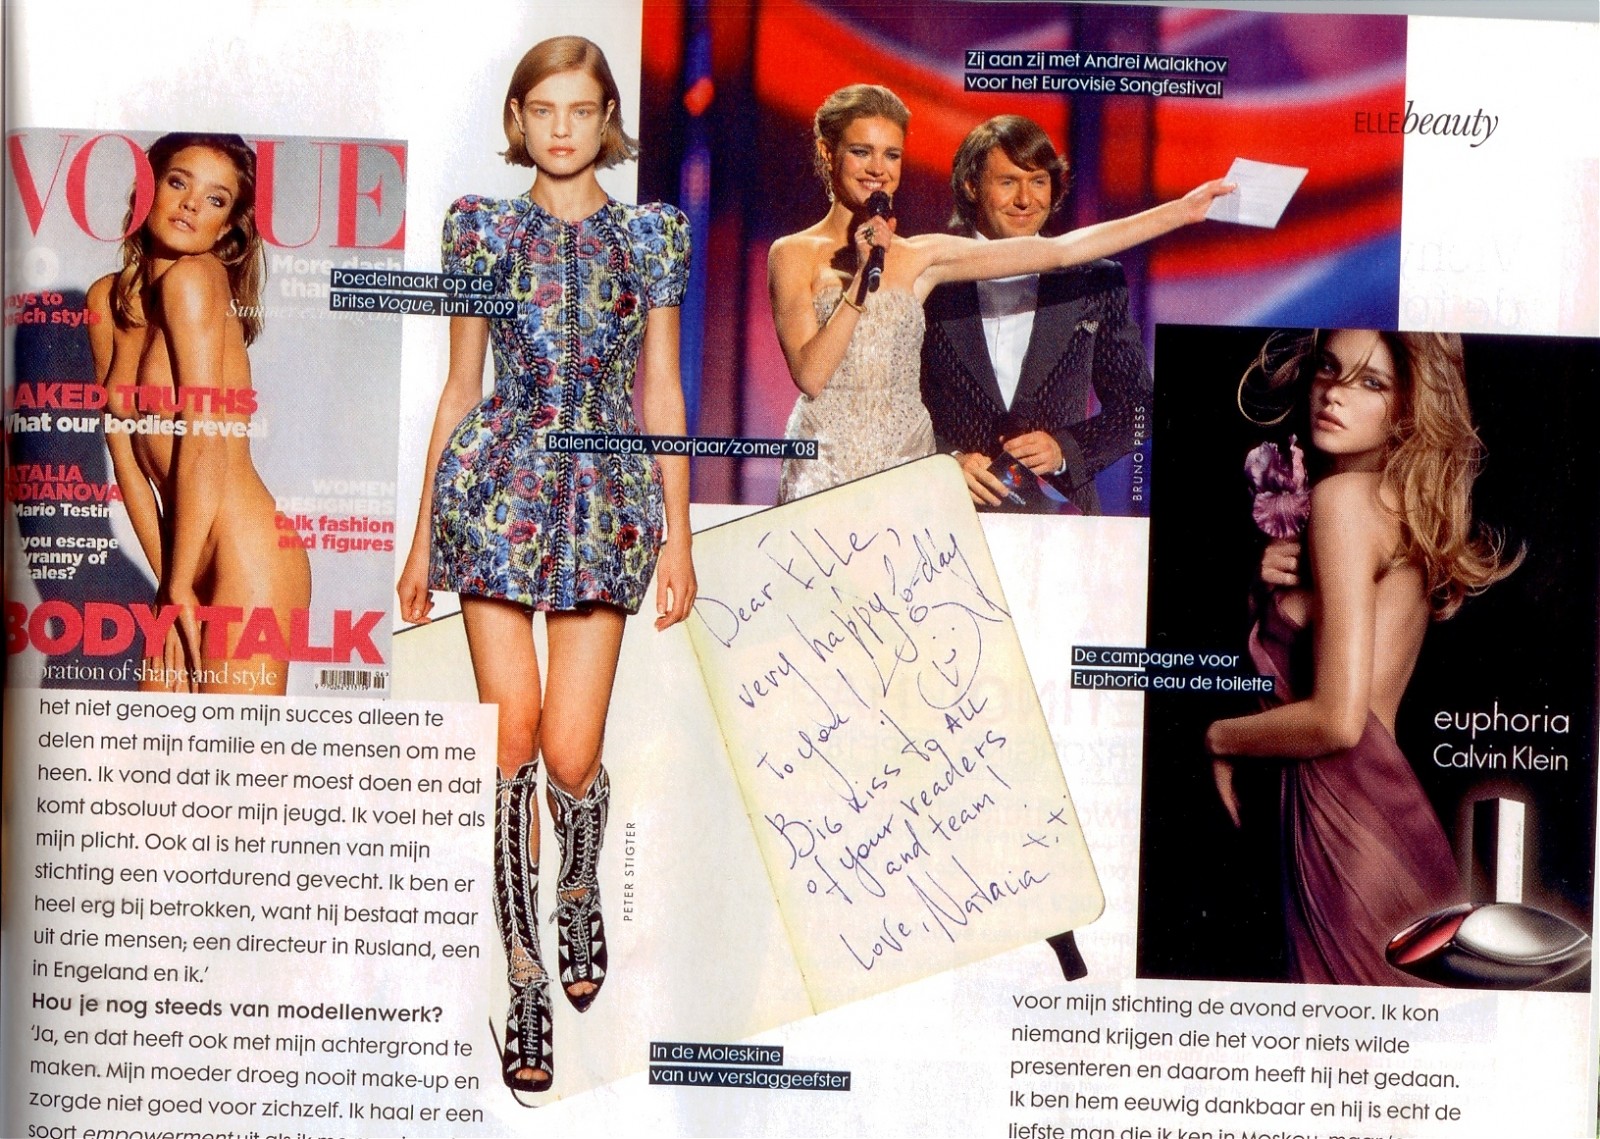 ELLEbeauty
Zij aan zij met Andrei Malakhov
voor het Eurovisie Songfestival
VOGUE
More dash
ays to
each style
Poedelnaakt op de
Britse Vogue, juni 2009
NAKED TRUTHS
What our bodies reveal
NATALIA
VODIANOVA
Mario Testin
WOMEN
DESIGNERS
talk fashion
and figures
you escape
tyranny of
scales?
BODY TALK
bration of shape and style
Balenciaga, voorjaar/zomer '08
BRUNO PRESS
Dear Elle,
very happy b-day
to you!
Big kiss to ALL
of your readers
and team!
Love, Natalia xx
PETER STIGTER
De campagne voor
Euphoria eau de toilette
euphoria
Calvin Klein
In de Moleskine
van uw verslaggeefster
het niet genoeg om mijn succes alleen te
delen met mijn familie en de mensen om me
heen. Ik vond dat ik meer moest doen en dat
komt absoluut door mijn jeugd. Ik voel het als
mijn plicht. Ook al is het runnen van mijn
stichting een voortdurend gevecht. Ik ben er
heel erg bij betrokken, want hij bestaat maar
uit drie mensen; een directeur in Rusland, een
in Engeland en ik.'
Hou je nog steeds van modellenwerk?
'Ja, en dat heeft ook met mijn achtergrond te
maken. Mijn moeder droeg nooit make-up en
zorgde niet goed voor zichzelf. Ik haal er een
soort empowerment uit als ik
voor mijn stichting de avond ervoor. Ik kon
niemand krijgen die het voor niets wilde
presenteren en daarom heeft hij het gedaan.
Ik ben hem eeuwig dankbaar en hij is echt de
liefste man die ik ken in Moskou,